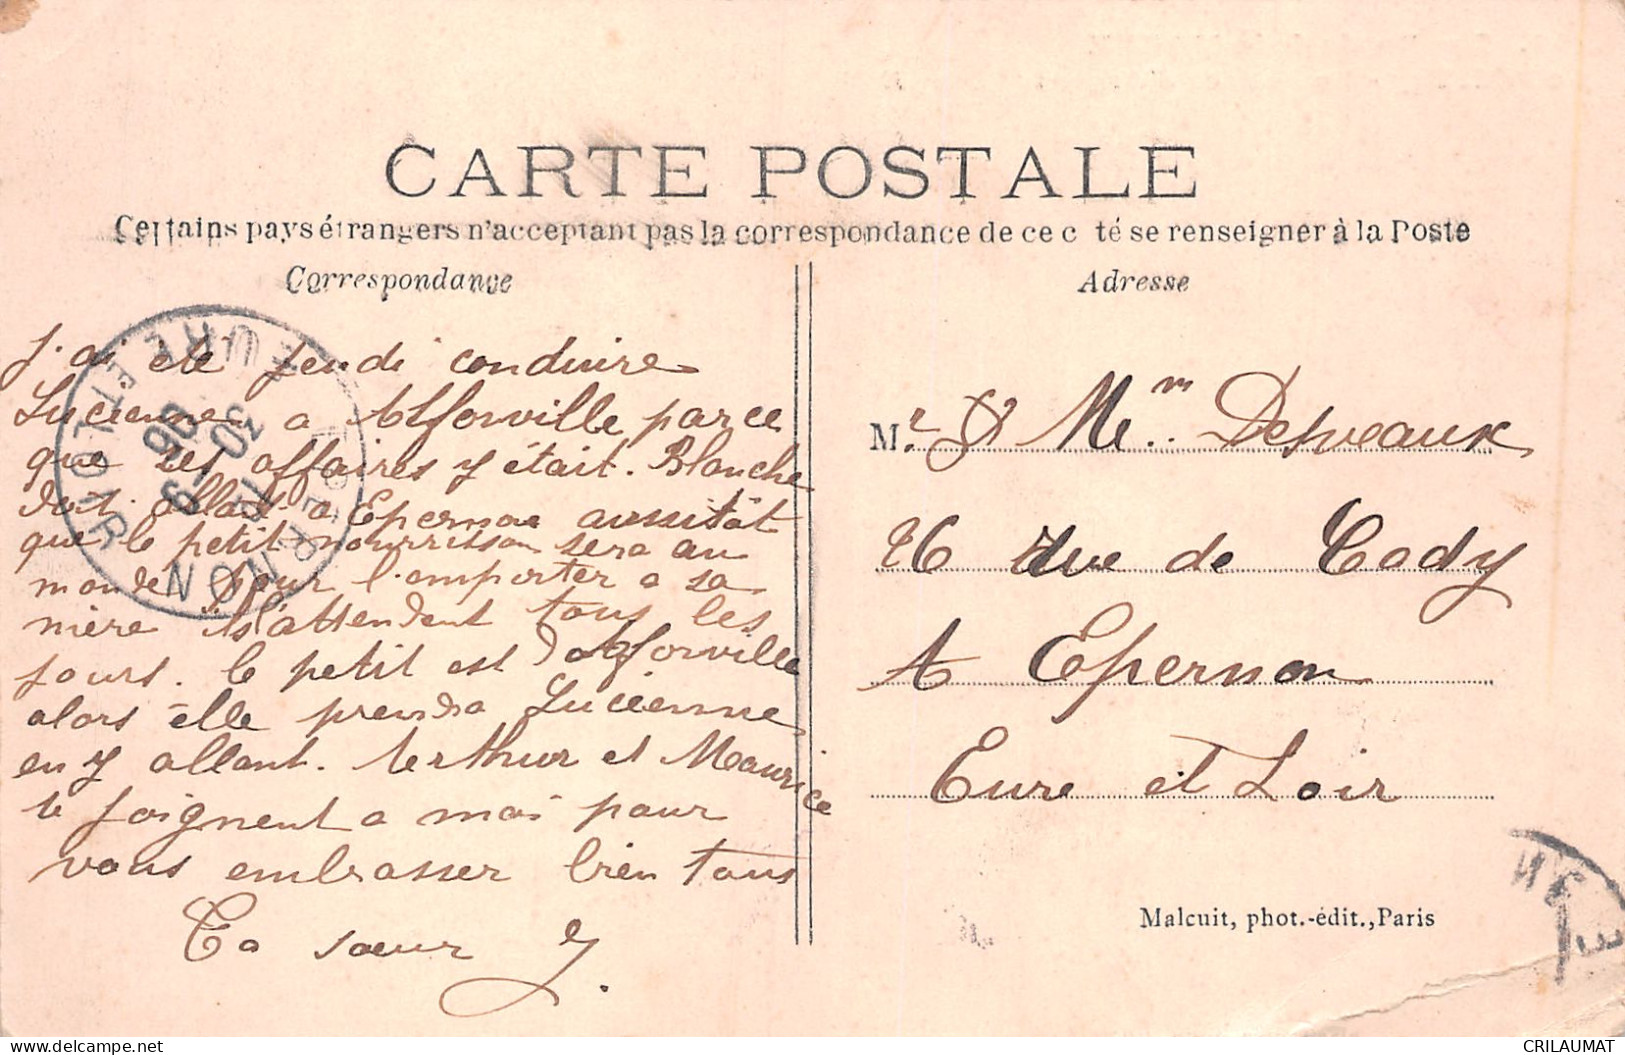 CARTE POSTALE
Certains pays étrangers n'acceptant pas la correspondance de ce c té se renseigner à la Poste
Correspondance
j.ai ete jeudi conduire
Lucienne a Alforville parce
que ses affaires y était. Blanche
doit allait a Epernon aussitôt
que le petit nourrisson sera au
monde pour l'emporter a sa
mère ils l'attendent tous les
jours. le petit est d Alforville
alors elle prendra Lucienne
en y allant. Arthur et Maurice
se joignent a moi pour
vous embrasser bien tous
Ta sœur J.
Adresse
M.r & Mme Depveaux
26 rue de Cady
A Epernon
Eure et Loir
Malcuit, phot.-édit., Paris
EPERNON
EURE ET LOIR
30
06
CRILAUMAT